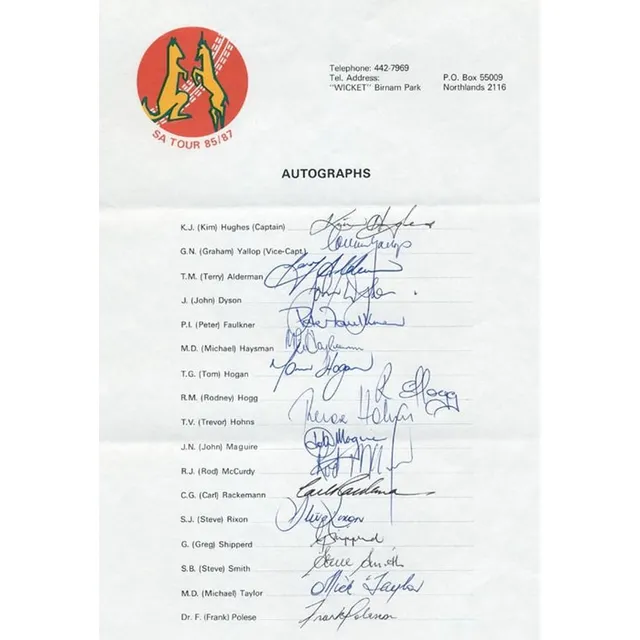 SA TOUR 85/87
Telephone: 442-7969
Tel. Address:
"WICKET" Birnam Park
P.O. Box 55009
Northlands 2116
AUTOGRAPHS
K.J. (Kim) Hughes (Captain) Kim Hughes
G.N. (Graham) Yallop (Vice-Capt.) Graham Yallop
T.M. (Terry) Alderman Terry Alderman
J. (John) Dyson John Dyson
P.I. (Peter) Faulkner Pete Faulkner
M.D. (Michael) Haysman M D Haysman
T.G. (Tom) Hogan Tom Hogan
R.M. (Rodney) Hogg R Hogg
T.V. (Trevor) Hohns Trevor Hohns
J.N. (John) Maguire John Maguire
R.J. (Rod) McCurdy Rod
C.G. (Carl) Rackemann Carl Rackemann
S.J. (Steve) Rixon Steve Rixon
G. (Greg) Shipperd G Shipperd
S.B. (Steve) Smith Steve Smith
M.D. (Michael) Taylor Mick Taylor
Dr. F. (Frank) Polese Frank Polese